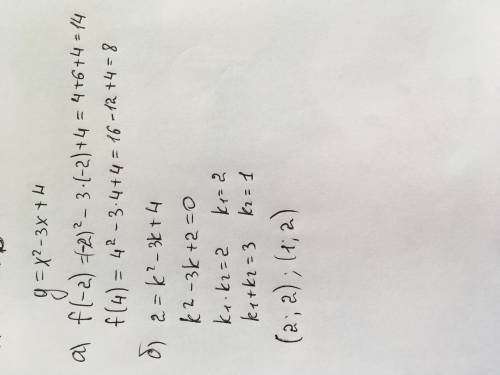 y = x² - 3x + 4
а) f(-2) = (-2)² - 3·(-2) + 4 = 4 + 6 + 4 = 14
f(4) = 4² - 3·4 + 4 = 16 - 12 + 4 = 8
б) 2 = k² - 3k + 4
k² - 3k + 2 = 0
k₁·k₂ = 2 k₁ = 2
k₁ + k₂ = 3 k₂ = 1
(2; 2); (1; 2)